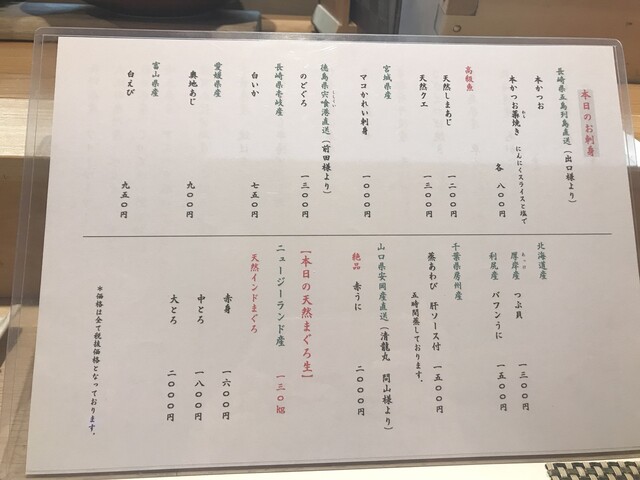 本日のお刺身
長崎県五島列島直送(出口様より)
本かつお
本かつお藁焼き わら にんにくスライスと塩で
各 八〇〇円
高級魚
天然しまあじ 一二〇〇円
天然クエ 一三〇〇円
宮城県産
マコかれい刺身 一〇〇〇円
徳島県宍喰港直送(前田様より)
のどぐろ 一三〇〇円
長崎県壱岐産
白いか 七五〇円
愛媛県産
奥地あじ 九〇〇円
富山県産
白えび 九五〇円
北海道産
厚岸産 つぶ貝 一三〇〇円
利尻産 バフンうに 一五〇〇円
千葉県房州産
蒸あわび 肝ソース付 一五〇〇円
五時間蒸しております。
山口県安岡産直送(清龍丸 間山様より)
絶品 赤うに 二〇〇〇円
【本日の天然まぐろ生】
ニュージーランド産
天然インドまぐろ 一三〇kg
赤身 一六〇〇円
中とろ 一八〇〇円
大とろ 二〇〇〇円
*価格は全て税抜価格となっております。